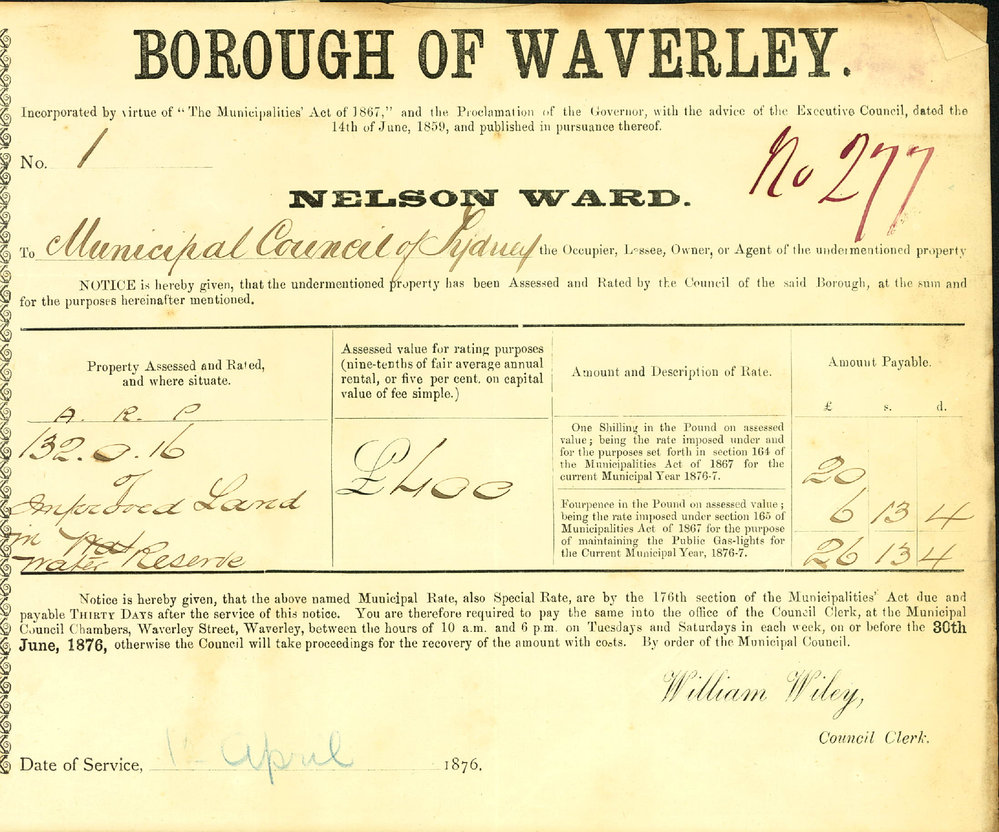 BOROUGH OF WAVERLEY.
Incorporated by virtue of "The Municipalities' Act of 1867," and the Proclamation of the Governor, with the advice of the Executive Council, dated the
14th of June, 1859, and published in pursuance thereof.
No. 1
No 277
NELSON WARD.
To Municipal Council of Sydney the Occupier, Lessee, Owner, or Agent of the undermentioned property
NOTICE is hereby given, that the undermentioned property has been Assessed and Rated by the Council of the said Borough, at the sum and
for the purposes hereinafter mentioned.
Property Assessed and Rated,
and where situate.
Assessed value for rating purposes
(nine-tenths of fair average annual
rental, or five per cent. on capital
value of fee simple.)
Amount and Description of Rate.
Amount Payable.
£ s. d.
A. R. P
132.0.16
of
Improved Land
in
Water Reserve
£400
One Shilling in the Pound on assessed
value; being the rate imposed under and
for the purposes set forth in section 164 of
the Municipalities Act of 1867 for the
current Municipal Year 1876-7.
20
Fourpence in the Pound on assessed value;
being the rate imposed under section 165 of
Municipalities Act of 1867 for the purpose
of maintaining the Public Gas-lights for
the Current Municipal Year, 1876-7.
6 13 4
26 13 4
Notice is hereby given, that the above named Municipal Rate, also Special Rate, are by the 176th section of the Municipalities' Act due and
payable THIRTY DAYS after the service of this notice. You are therefore required to pay the same into the office of the Council Clerk, at the Municipal
Council Chambers, Waverley Street, Waverley, between the hours of 10 a.m. and 6 p.m. on Tuesdays and Saturdays in each week, on or before the 30th
June, 1876, otherwise the Council will take proceedings for the recovery of the amount with costs. By order of the Municipal Council.
William Wiley,
Council Clerk.
Date of Service, 1 April 1876.